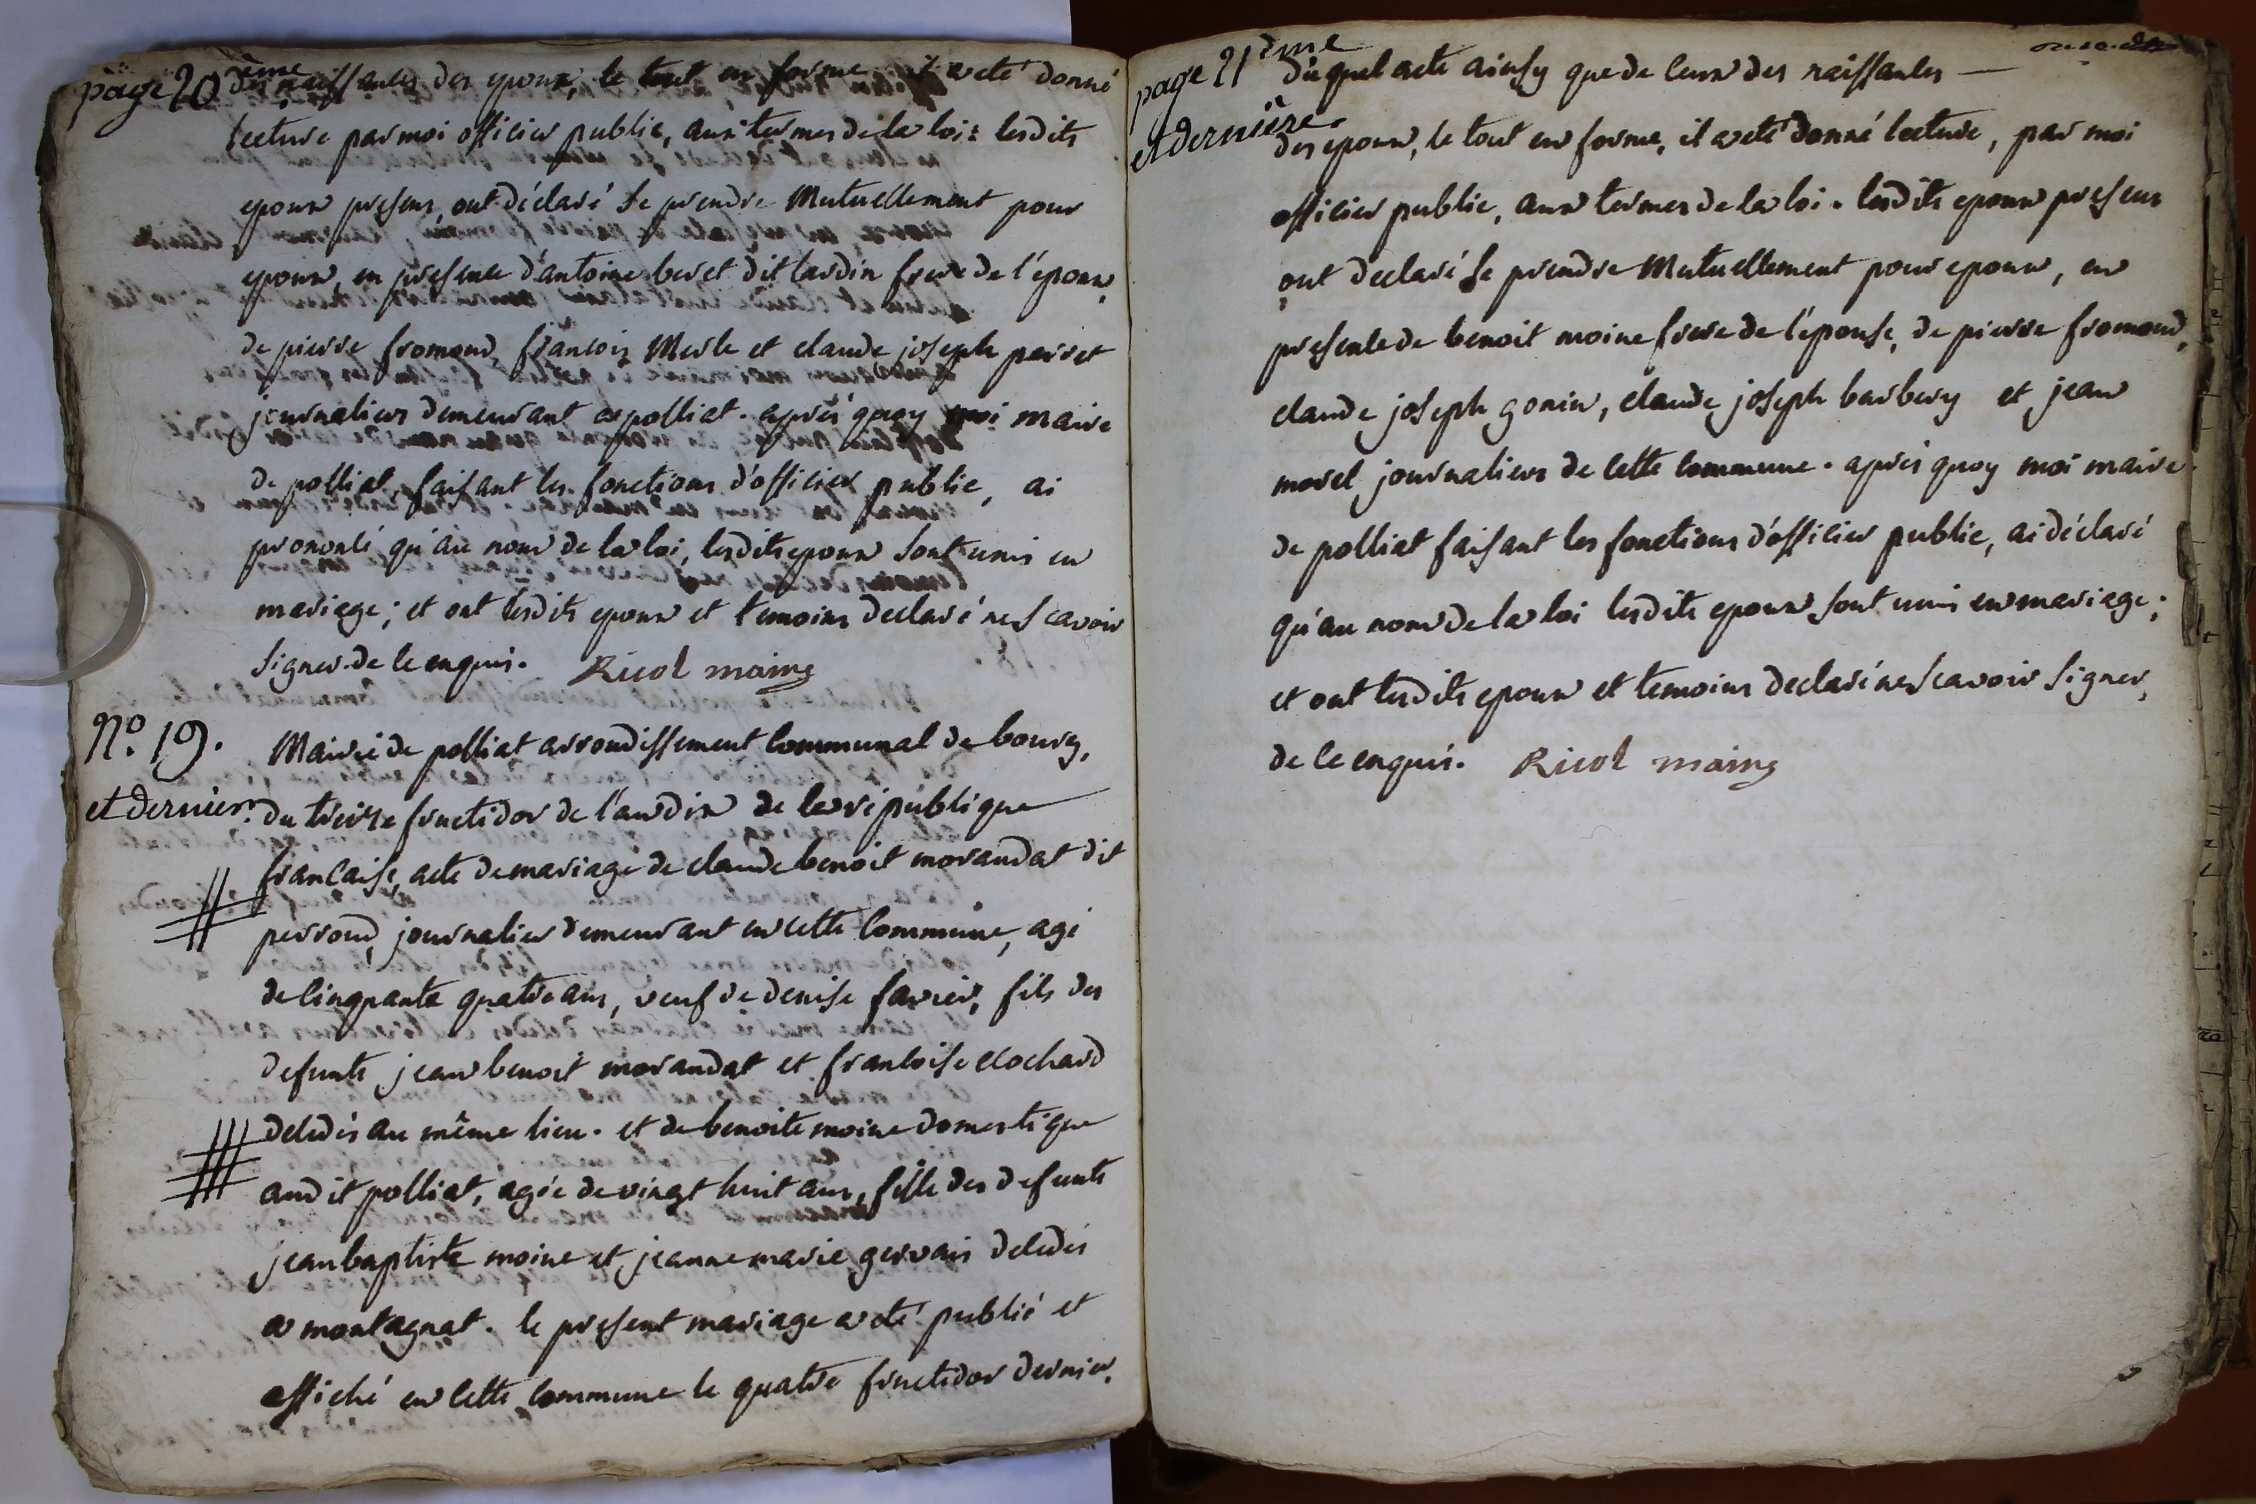 page 20ème
des naissances des epoux, le tout en forme il a eté donné
lecture par moi officier public, aux termes de la loi: lesdits
epoux presens, ont déclaré se prendre Mutuellement pour
epoux, en presence d'antoine beret dit lardin frere de l'epoux,
de pierre fromond, francois Merle et claude joseph perret
journaliers demeurant a polliat. après quoy moi maire
de polliat, faisant les fonctions d'officier public, ai
prononcé qu'au nom de la loi, lesdits epoux sont unis en
mariage; et ont lesdits epoux et temoins declaré ne scavoir
signer de ce enquis. Ricol maire
N.º 19.
et dernier.
Mairie de polliat arrondissement communal de bourg,
du treize fructidor de l'an dix de la république
francaise, acte de mariage de claude benoit morandat dit
perroud, journalier demeurant en cette commune, agé
de cinquante quatre ans, veuf de denise favier, fils des
defunts jean benoit morandat et francoise clochard
decedés au même lieu. et de benoite moine domestique
audit polliat, agée de vingt huit ans, fille des defunts
jean baptiste moine et jeanne marie gervais decedés
a montagnat. le present mariage a eté publié et
affiché en cette commune le quatre fructidor dernier.
page 21ème
et dernière.
duquel acte ainsy que de ceux des naissances
des epoux, le tout en forme, il a eté donné lecture, par moi
officier public, aux termes de la loi. lesdits epoux presens
ont declaré se prendre Mutuellement pour epoux, en
presence de benoit moine frere de l'epouse, de pierre fromond,
claude joseph gonin, claude joseph barbery et jean
morel journaliers de cette commune. après quoy moi maire
de polliat faisant les fonctions d'officier public, ai déclaré
qu'au nom de la loi lesdits epoux sont unis en mariage;
et ont lesdits epoux et temoins declaré ne scavoir signer,
de ce enquis. Ricol maire